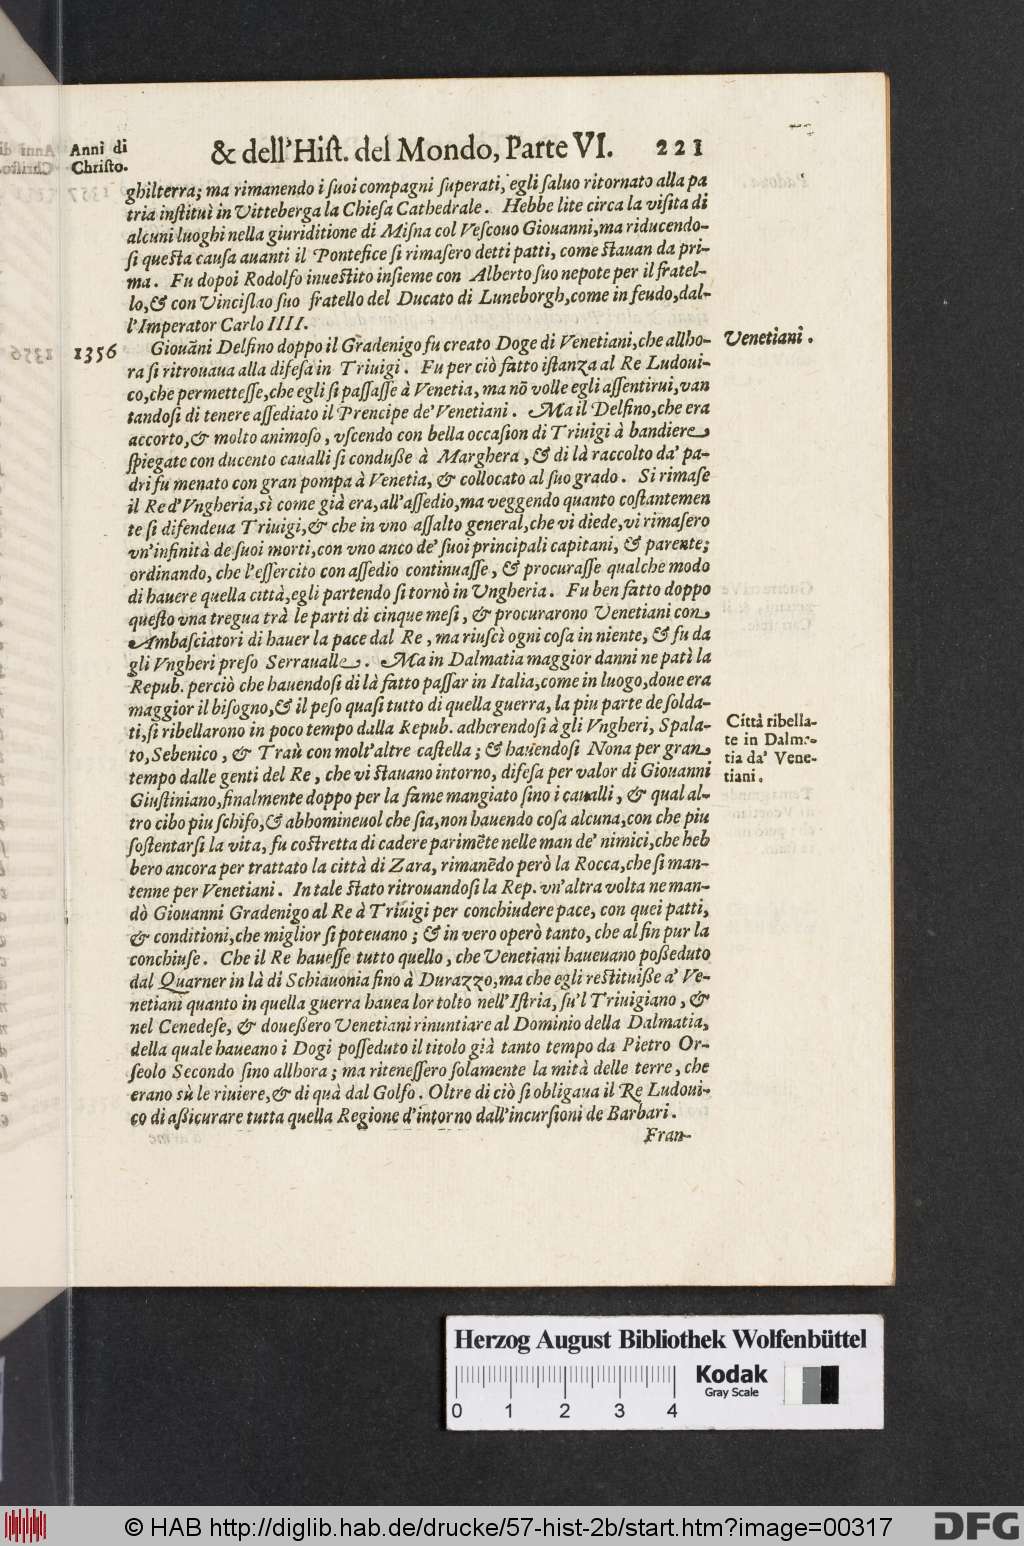 Anni di
Christo.
& dell'Hist. del Mondo, Parte VI. 221
ghilterra; ma rimanendo i suoi compagni superati, egli saluo ritornato alla pa
tria instituì in Vitteberga la Chiesa Cathedrale. Hebbe lite circa la visita di
alcuni luoghi nella giuriditione di Misna col Vescouo Giouanni, ma riducendo-
si questa causa auanti il Pontefice si rimasero detti patti, come stauan da pri-
ma. Fu dopoi Rodolfo inuestito insieme con Alberto suo nepote per il fratel-
lo, & con Vincislao suo fratello del Ducato di Luneborgh, come in feudo, dal-
l'Imperator Carlo IIII.
1356
Giouãni Delfino doppo il Gradenigo fu creato Doge di Venetiani, che allho-
Venetiani.
ra si ritrouaua alla difesa in Triuigi. Fu per ciò fatto istanza al Re Ludoui-
co, che permettesse, che egli si passasse à Venetia, ma nõ volle egli assentirui, van
tandosi di tenere assediato il Prencipe de' Venetiani. Ma il Delfino, che era
accorto, & molto animoso, vscendo con bella occasion di Triuigi à bandiere
spiegate con ducento caualli si condusse à Marghera, & di là raccolto da' pa-
dri fu menato con gran pompa à Venetia, & collocato al suo grado. Si rimase
il Re d'Vngheria, sì come già era, all'assedio, ma veggendo quanto costantemen
te si difendeua Triuigi, & che in vno assalto general, che vi diede, vi rimasero
vn'infinità de suoi morti, con vno anco de' suoi principali capitani, & parente;
ordinando, che l'essercito con assedio continuasse, & procurasse qualche modo
di hauere quella città, egli partendo si tornò in Vngheria. Fu ben fatto doppo
questo vna tregua trà le parti di cinque mesi, & procurarono Venetiani con
Ambasciatori di hauer la pace dal Re, ma riuscì ogni cosa in niente, & fu da
gli Vngheri preso Serraualle. Ma in Dalmatia maggior danni ne patì la
Repub. perciò che hauendosi di là fatto passar in Italia, come in luogo, doue era
maggior il bisogno, & il peso quasi tutto di quella guerra, la piu parte de solda-
ti, si ribellarono in poco tempo dalla Repub. adherendosi à gli Vngheri, Spala-
to, Sebenico, & Traù con molt'altre castella; & hauendosi Nona per gran
tempo dalle genti del Re, che vi stauano intorno, difesa per valor di Giouanni
Giustiniano, finalmente doppo per la fame mangiato sino i caualli, & qual al-
tro cibo piu schifo, & abhomineuol che sia, non hauendo cosa alcuna, con che piu
sostentarsi la vita, fu costretta di cadere parimẽte nelle man de' nimici, che heb
bero ancora per trattato la città di Zara, rimanẽdo però la Rocca, che si man-
tenne per Venetiani. In tale stato ritrouandosi la Rep. vn'altra volta ne man-
dò Giouanni Gradenigo al Re à Triuigi per conchiudere pace, con quei patti,
& conditioni, che miglior si poteuano; & in vero operò tanto, che al fin pur la
conchiuse. Che il Re hauesse tutto quello, che Venetiani haueuano posseduto
dal Quarner in là di Schiauonia fino à Durazzo, ma che egli restituisse a' Ve-
netiani quanto in quella guerra hauea lor tolto nell'Istria, su'l Triuigiano, &
nel Cenedese, & douessero Venetiani rinuntiare al Dominio della Dalmatia,
della quale haueano i Dogi posseduto il titolo già tanto tempo da Pietro Or-
seolo Secondo sino allhora; ma ritenessero solamente la mità delle terre, che
erano sù le riuiere, & di quà dal Golfo. Oltre di ciò si obligaua il Re Ludoui-
co di assicurare tutta quella Regione d'intorno dall'incursioni de Barbari.
Fran-
Città ribella-
te in Dalma-
tia da' Vene-
tiani.
Herzog August Bibliothek Wolfenbüttel
Kodak
Gray Scale
0 1 2 3 4
© HAB http://diglib.hab.de/drucke/57-hist-2b/start.htm?image=00317
DFG